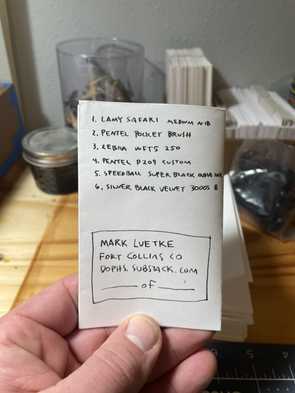 1. LAMY SAFARI MEDIUM NIB
2. PENTEL POCKET BRUSH
3. ZEBRA
4. PENTEL P209 CUSTOM
5. SPEEDBALL SUPER BLACK INDIA INK
6. SILVER BLACK VELVET 3000S 8
MARK LUETKE
FORT COLLINS CO
DOPHS.SUBSTACK.COM
____ of ____